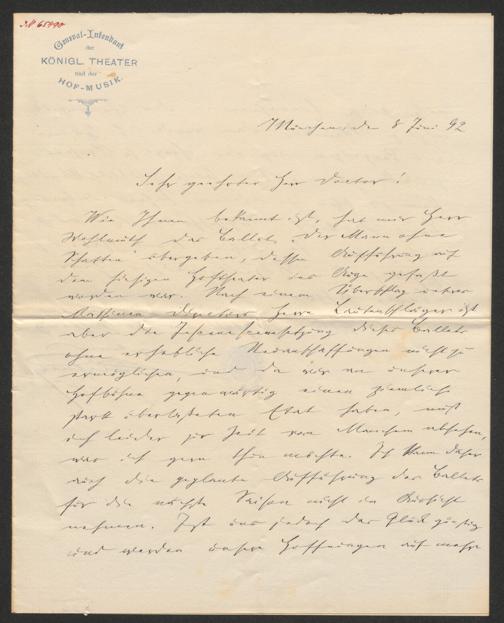 General-Intendant
der
KÖNIGL. THEATER
und der
HOF-MUSIK.
München, den 8 Juni 92
Sehr geehrter Herr Doctor!
Wie Ihnen bekannt ist, hat mir Herr
Wohlmuth das Ballet „Der Mann ohne
Schatten" übergeben, dessen Aufführung auf
dem hiesigen Hoftheater ins Auge gefaßt
worden war. Nach einem Überschlag unseres
Maschinen Directors Herrn Lautenschläger ist
aber die Inscenesetzung dieses Ballets
ohne erhebliche Neuanschaffungen nicht zu
ermöglichen, und da wir an unserer
Hofbühne gegenwärtig einen ziemlich
stark überlasteten Etat haben, muß
ich leider zur Zeit von Manchem absehen,
was ich gern thun möchte. Ich kann daher
auch die geplante Aufführung des Ballets
für die nächste Saison nicht in Aussicht
nehmen. Ist uns jedoch das Glück günstig
und werden unsere Hoffnungen auf mehr